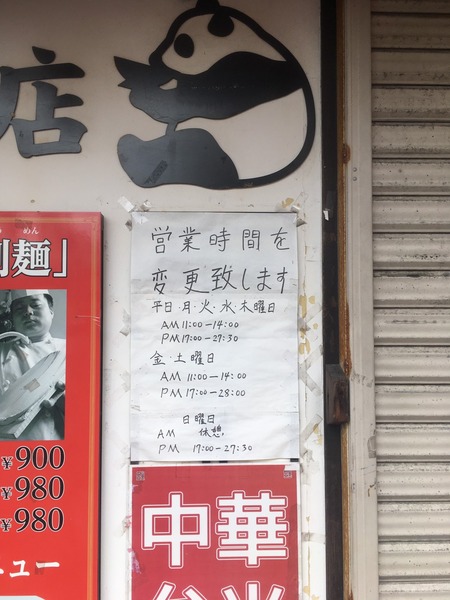 店
営業時間を
変更致します
平日・月・火・水・木曜日
AM 11:00-14:00
PM 17:00-27:30
金・土曜日
AM 11:00-14:00
PM 17:00-28:00
日曜日
AM 休憩
PM 17:00-27:30
めん
削麺」
¥900
¥980
¥980
ニュー
中華